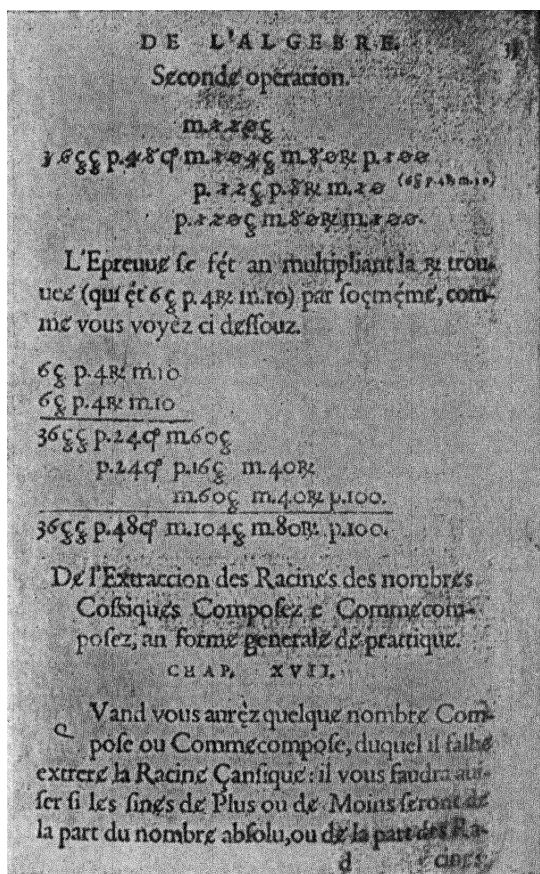 DE L'ALGEBRE.
Secondę operacion.
m.120ʒ
36ʒʒ p.48ↄ m.104ʒ m.80℞ p.100
p.12ʒ p.8℞ m.10 (6ʒ p.4℞ m.10)
p.120ʒ m.80℞ m.100.
L'Epreuuę ſe fęt an multipliant la ℞ trou-
uęę (qui ęt 6ʒ p.4℞ m.10) par ſoęmęmę, com-
mę vous voyèz ci deſſouz.
6ʒ p.4℞ m.10
6ʒ p.4℞ m.10
36ʒʒ p.24ↄ m.60ʒ
p.24ↄ p.16ʒ m.40℞
m.60ʒ m.40℞ p.100.
36ʒʒ p.48ↄ m.104ʒ m.80℞ p.100.
Dę l'Extraccion des Racinęs des nombręs
Coſsiquęs Compoſez e Commęcom-
poſez, an formę generalę dę prattiquę.
CHAP. XVII.
QVand vous aurèz quelquę nombrę Com-
poſe ou Commęcompoſe, duquel il falhę
extrerę la Racinę Çanſiquę: il vous faudra aui-
ſer ſi les ſinęs dę Plus ou dę Moins ſeront dę
la part du nombrę abſolu, ou dę la part des Ra-
d cinęs,